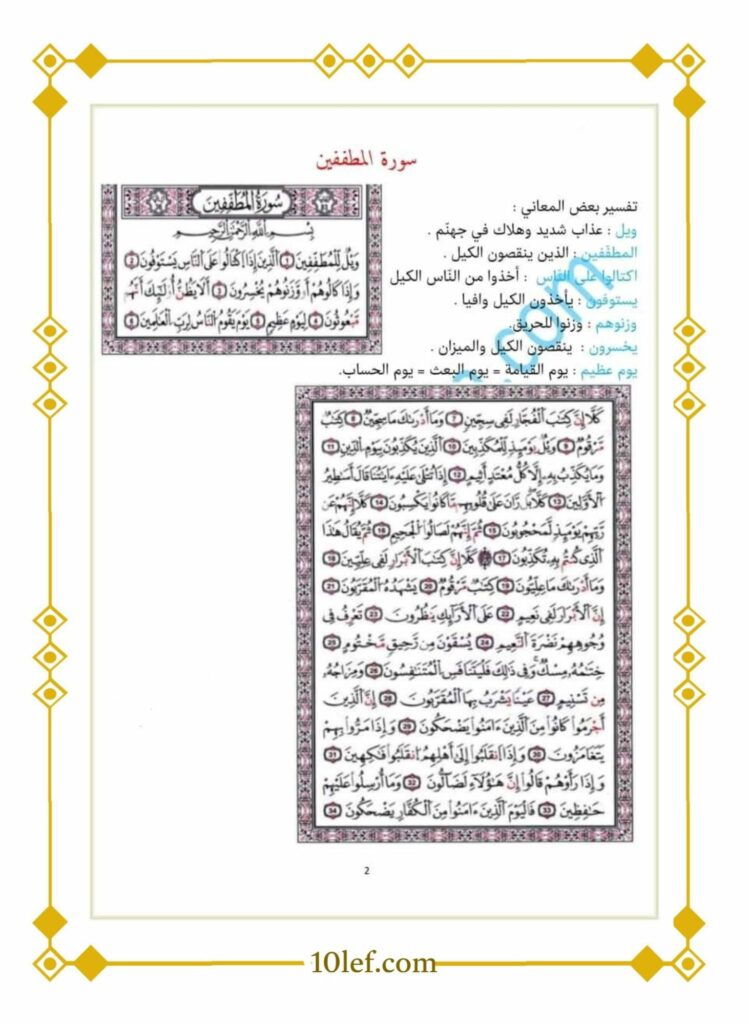 سورة المطففين
تفسير بعض المعاني :
ويل : عذاب شديد وهلاك في جهنّم .
المطفّفين : الذين ينقصون الكيل .
اكتالوا على الناس : أخذوا من النّاس الكيل
يستوفون : يأخذون الكيل وافيا .
وزنوهم : وزنوا للحريق.
يخسرون : ينقصون الكيل والميزان .
يوم عظيم : يوم القيامة = يوم البعث = يوم الحساب.
سُورَةُ المُطَفِّفِينَ
بِسْمِ اللَّهِ الرَّحْمَٰنِ الرَّحِيمِ
وَيْلٌ لِّلْمُطَفِّفِينَ 1 الَّذِينَ إِذَا اكْتَالُوا عَلَى النَّاسِ يَسْتَوْفُونَ 2
وَإِذَا كَالُوهُمْ أَو وَّزَنُوهُمْ يُخْسِرُونَ 3 أَلَا يَظُنُّ أُوْلَٰئِكَ أَنَّهُم
مَّبْعُوثُونَ 4 لِيَوْمٍ عَظِيمٍ 5 يَوْمَ يَقُومُ النَّاسُ لِرَبِّ الْعَالَمِينَ 6
كَلَّا إِنَّ كِتَٰبَ الْفُجَّارِ لَفِي سِجِّينٍ 7 وَمَا أَدْرَىٰكَ مَا سِجِّينٌ 8 كِتَٰبٌ
مَّرْقُومٌ 9 وَيْلٌ يَوْمَئِذٍ لِّلْمُكَذِّبِينَ 10 الَّذِينَ يُكَذِّبُونَ بِيَوْمِ الدِّينِ 11
وَمَا يُكَذِّبُ بِهِ إِلَّا كُلُّ مُعْتَدٍ أَثِيمٍ 12 إِذَا تُتْلَىٰ عَلَيْهِ ءَايَٰتُنَا قَالَ أَسَٰطِيرُ
الْأَوَّلِينَ 13 كَلَّا بَلْ رَانَ عَلَىٰ قُلُوبِهِم مَّا كَانُوا يَكْسِبُونَ 14 كَلَّا إِنَّهُمْ عَن
رَّبِّهِمْ يَوْمَئِذٍ لَّمَحْجُوبُونَ 15 ثُمَّ إِنَّهُمْ لَصَالُوا الْجَحِيمِ 16 ثُمَّ يُقَالُ هَٰذَا
الَّذِي كُنتُم بِهِ تُكَذِّبُونَ 17 كَلَّا إِنَّ كِتَٰبَ الْأَبْرَارِ لَفِي عِلِّيِّينَ 18
وَمَا أَدْرَىٰكَ مَا عِلِّيُّونَ 19 كِتَٰبٌ مَّرْقُومٌ 20 يَشْهَدُهُ الْمُقَرَّبُونَ 21
إِنَّ الْأَبْرَارَ لَفِي نَعِيمٍ 22 عَلَى الْأَرَائِكِ يَنظُرُونَ 23 تَعْرِفُ فِي
وُجُوهِهِمْ نَضْرَةَ النَّعِيمِ 24 يُسْقَوْنَ مِن رَّحِيقٍ مَّخْتُومٍ 25
خِتَٰمُهُ مِسْكٌ وَفِي ذَٰلِكَ فَلْيَتَنَافَسِ الْمُتَنَٰفِسُونَ 26 وَمِزَاجُهُ
مِن تَسْنِيمٍ 27 عَيْنًا يَشْرَبُ بِهَا الْمُقَرَّبُونَ 28 إِنَّ الَّذِينَ
أَجْرَمُوا كَانُوا مِنَ الَّذِينَ ءَامَنُوا يَضْحَكُونَ 29 وَإِذَا مَرُّوا بِهِمْ
يَتَغَامَزُونَ 30 وَإِذَا انقَلَبُوا إِلَىٰ أَهْلِهِمُ انقَلَبُوا فَكِهِينَ 31
وَإِذَا رَأَوْهُمْ قَالُوا إِنَّ هَٰؤُلَاءِ لَضَالُّونَ 32 وَمَا أُرْسِلُوا عَلَيْهِمْ
حَٰفِظِينَ 33 فَالْيَوْمَ الَّذِينَ ءَامَنُوا مِنَ الْكُفَّارِ يَضْحَكُونَ 34
2
10lef.com